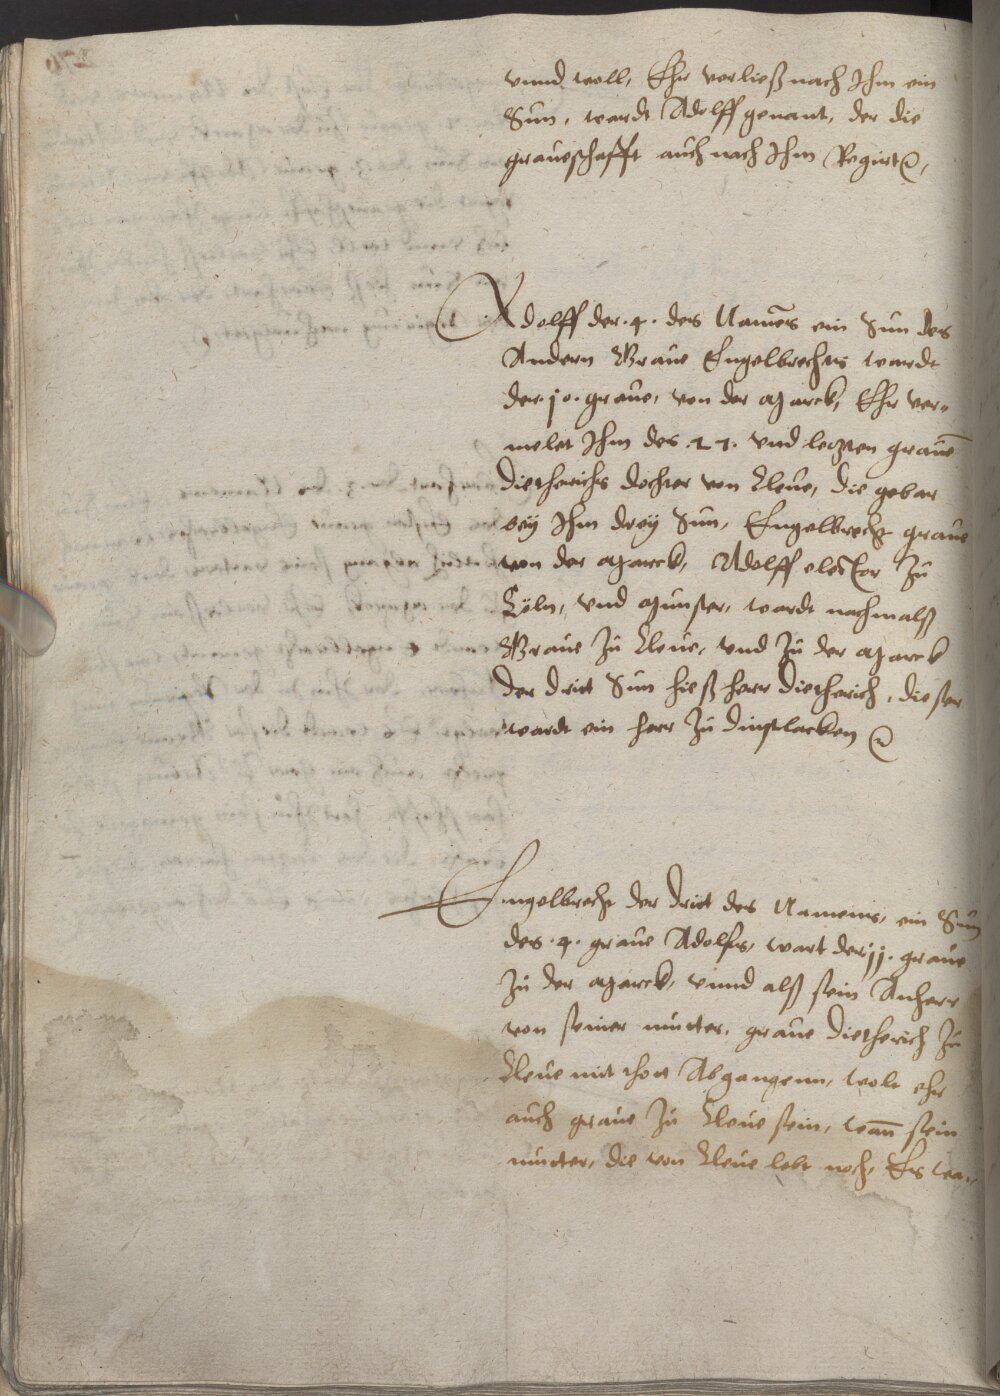 vnnd woll, Ehr verließ nach Ihm ein
Sun, wardt Adolff genant, der die
graueschafft auch nach Ihm Regirt ꝛc,
Adolff der .4. des Namēs ein Sun des
Andern Graue Engelbrechts wardt
der .10. graue, von der Marck, Ehr ver„
melet Ihm des .11. vnd lezten grauē
Dietherichs dochter von Cleue, die gebar
bey Ihm drey Sun, Engelbrecht graue
von der Marck, Adolff elector zu
Cöln, vnd Munster, wardt nachmalß
Graue zu Cleue, vnd zu der Marck
Der dritt Sun hieß herr Dietherich, dießer
wardt ein herr zu Dinslacken ꝛc
Engelbrecht der dritt des Namenns, ein Sun
des .4. graue Adolfs, wart der jj. graue
zu der Marck, vnnd alß sein Anherr
von seiner mutter, graue Dietherich zu
Cleue mit thott Abgangenn, wolt ehr
auch graue zu Cleue sein, wan̄ sein
mutter, die von Cleue lebt noch, Es wa„